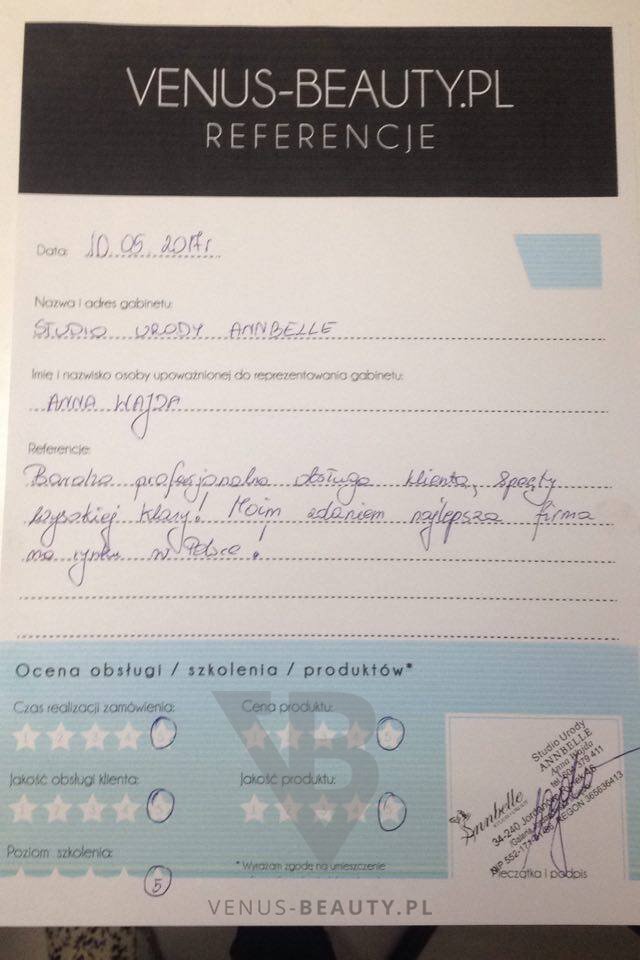 VENUS-BEAUTY.PL
REFERENCJE
Data: 10.05.2017r
Nazwa i adres gabinetu:
STUDIO URODY ANNBELLE
Imię i nazwisko osoby upoważnionej do reprezentowania gabinetu:
ANNA WAJDA
Referencje:
Bardzo profesjonalna obsługa klienta, sprzęty
wysokiej klasy! Moim zdaniem najlepsza firma
na rynku w Polsce!
Ocena obsługi / szkolenia / produktów*
Czas realizacji zamówienia: Cena produktu:
1 2 3 4 5 1 2 3 4 5
Jakość obsługi klienta: Jakość produktu:
1 2 3 4 5 1 2 3 4 5
Poziom szkolenia:
5
* Wyrażam zgodę na umieszczenie
Studio Urody
ANNBELLE
Anna Wajda
Annbelle
34-240
REGON 365636413
Pieczątka i podpis
VB
VENUS-BEAUTY.PL